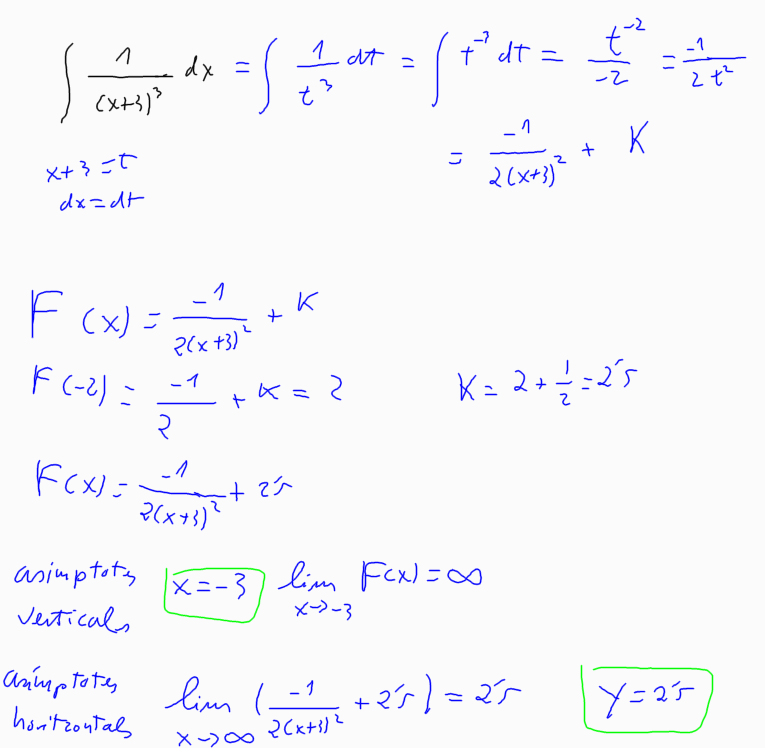 ∫ 1/(x+3)³ dx = ∫ 1/t³ dt = ∫ t⁻³ dt = t⁻²/-2 = -1/2t²
x+3=t
dx=dt
= -1/2(x+3)² + K
F(x) = -1/2(x+3)² + K
F(-2) = -1/2 + K = 2
K = 2 + 1/2 = 2'5
F(x) = -1/2(x+3)² + 2'5
asimptotes verticals x=-3 lim x→-3 F(x) = ∞
asímptotes horitzontals lim x→∞ (-1/2(x+3)² + 2'5) = 2'5 y=2'5